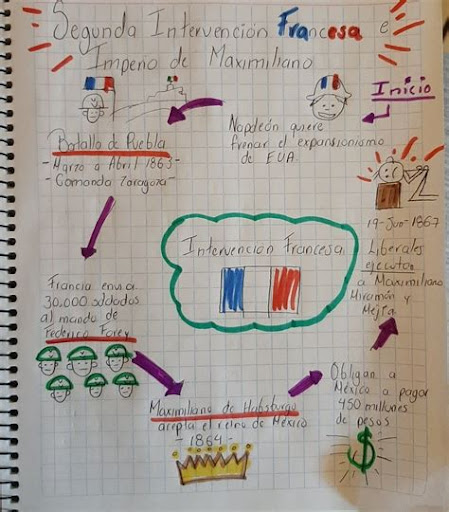 Segunda Intervención Francesa e
Impeño de Maximiliano
Inicio
Napoleón quiere
frenar el expansionismo
de EUA.
Batalla de Puebla
- Marzo a Abril 1863 -
- Comanda Zaragoza -
Francia envia
30.000 soldados
al mando de
Federico Forey
Maximiliano de Habsburgo
acepta el reino de México
- 1864 -
Obligan a
México a pagar
450 millones
de pesos
$
19-Jun-1867
Liberales
ejecutan
a Maximiliano
Miramón y
Mejía
Intervención Francesa